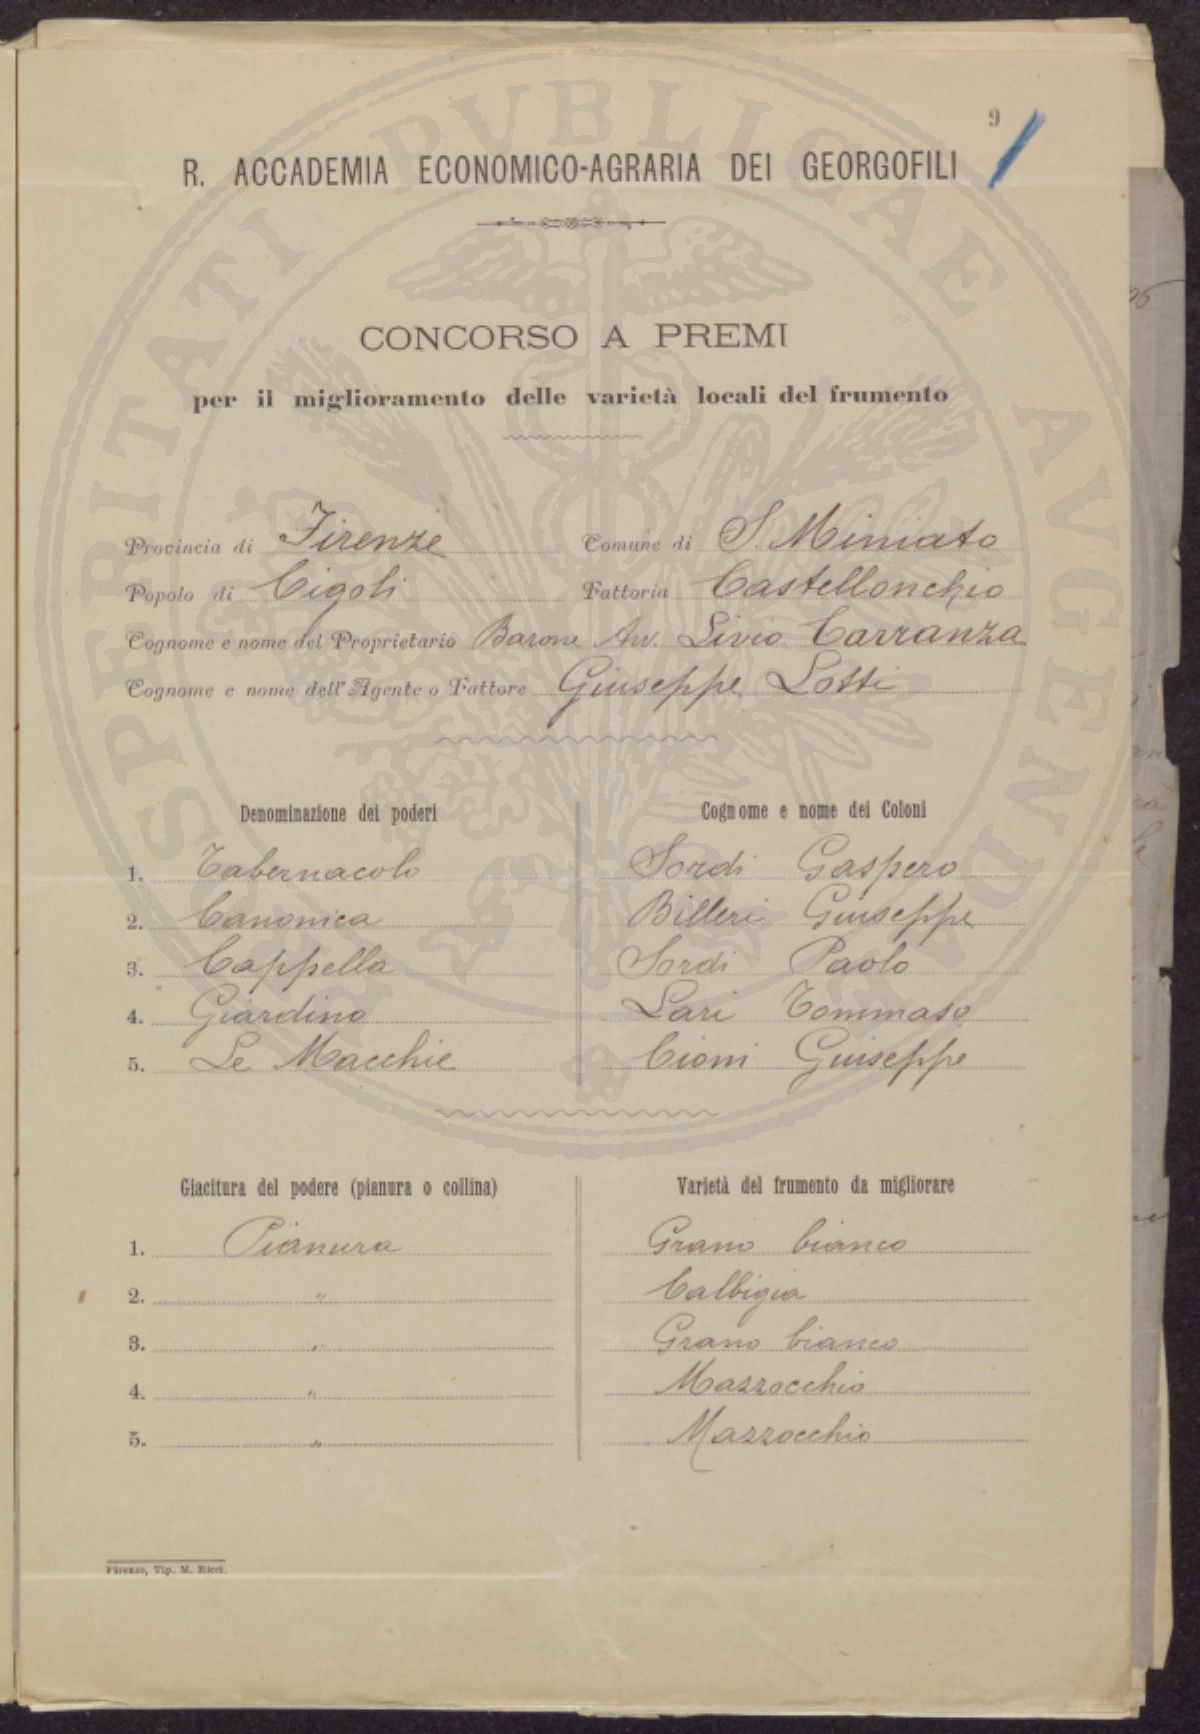 9
R. ACCADEMIA ECONOMICO-AGRARIA DEI GEORGOFILI
CONCORSO A PREMI
per il miglioramento delle varietà locali del frumento
Provincia di Firenze Comune di S. Miniato
Popolo di Cigoli Fattoria Castellonchio
Cognome e nome del Proprietario Barone Avv. Livio Carranza
Cognome e nome dell'Agente o Fattore Giuseppe Lotti
Denominazione dei poderi Cognome e nome dei Coloni
1. Tabernacolo Sordi Gaspero
2. Canonica Billeri Giuseppe
3. Cappella Sordi Paolo
4. Giardino Lari Tommaso
5. Le Macchie Cioni Giuseppe
Giacitura del podere (pianura o collina) Varietà del frumento da migliorare
1. Pianura Grano bianco
2. " Calbigia
3. " Grano bianco
4. " Mazzocchio
5. " Mazzocchio
Firenze, Tip. M. Ricci.
PROSPERITATI PVBLICAE AVGENDAE